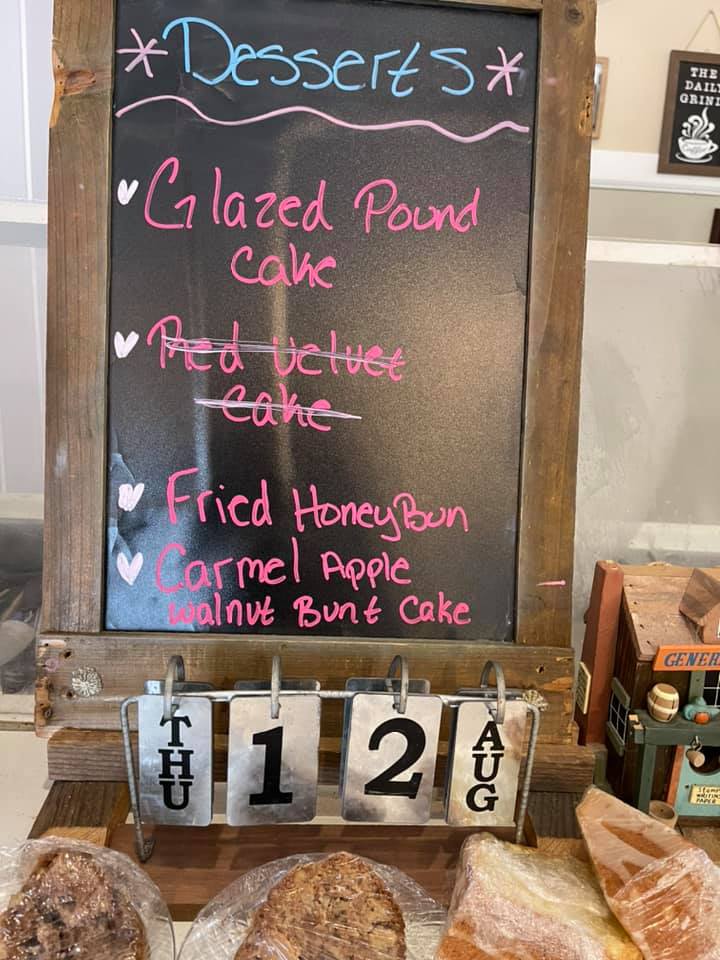 *Desserts*
Glazed Pound
Cake
Red Velvet
Cake
Fried HoneyBun
Carmel Apple
Walnut Bunt Cake
THU 12 AUG
THE
DAILY
GRIND
GENER